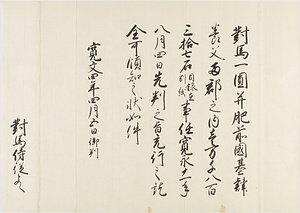 對馬一圓并肥前國基肄
養父兩郡之内壱万千八百
三拾七石目録在別紙事任寛永十一年
八月四日先判之旨充行之訖
全可領知之状如件
寛文四年四月五日御判
對馬侍従との